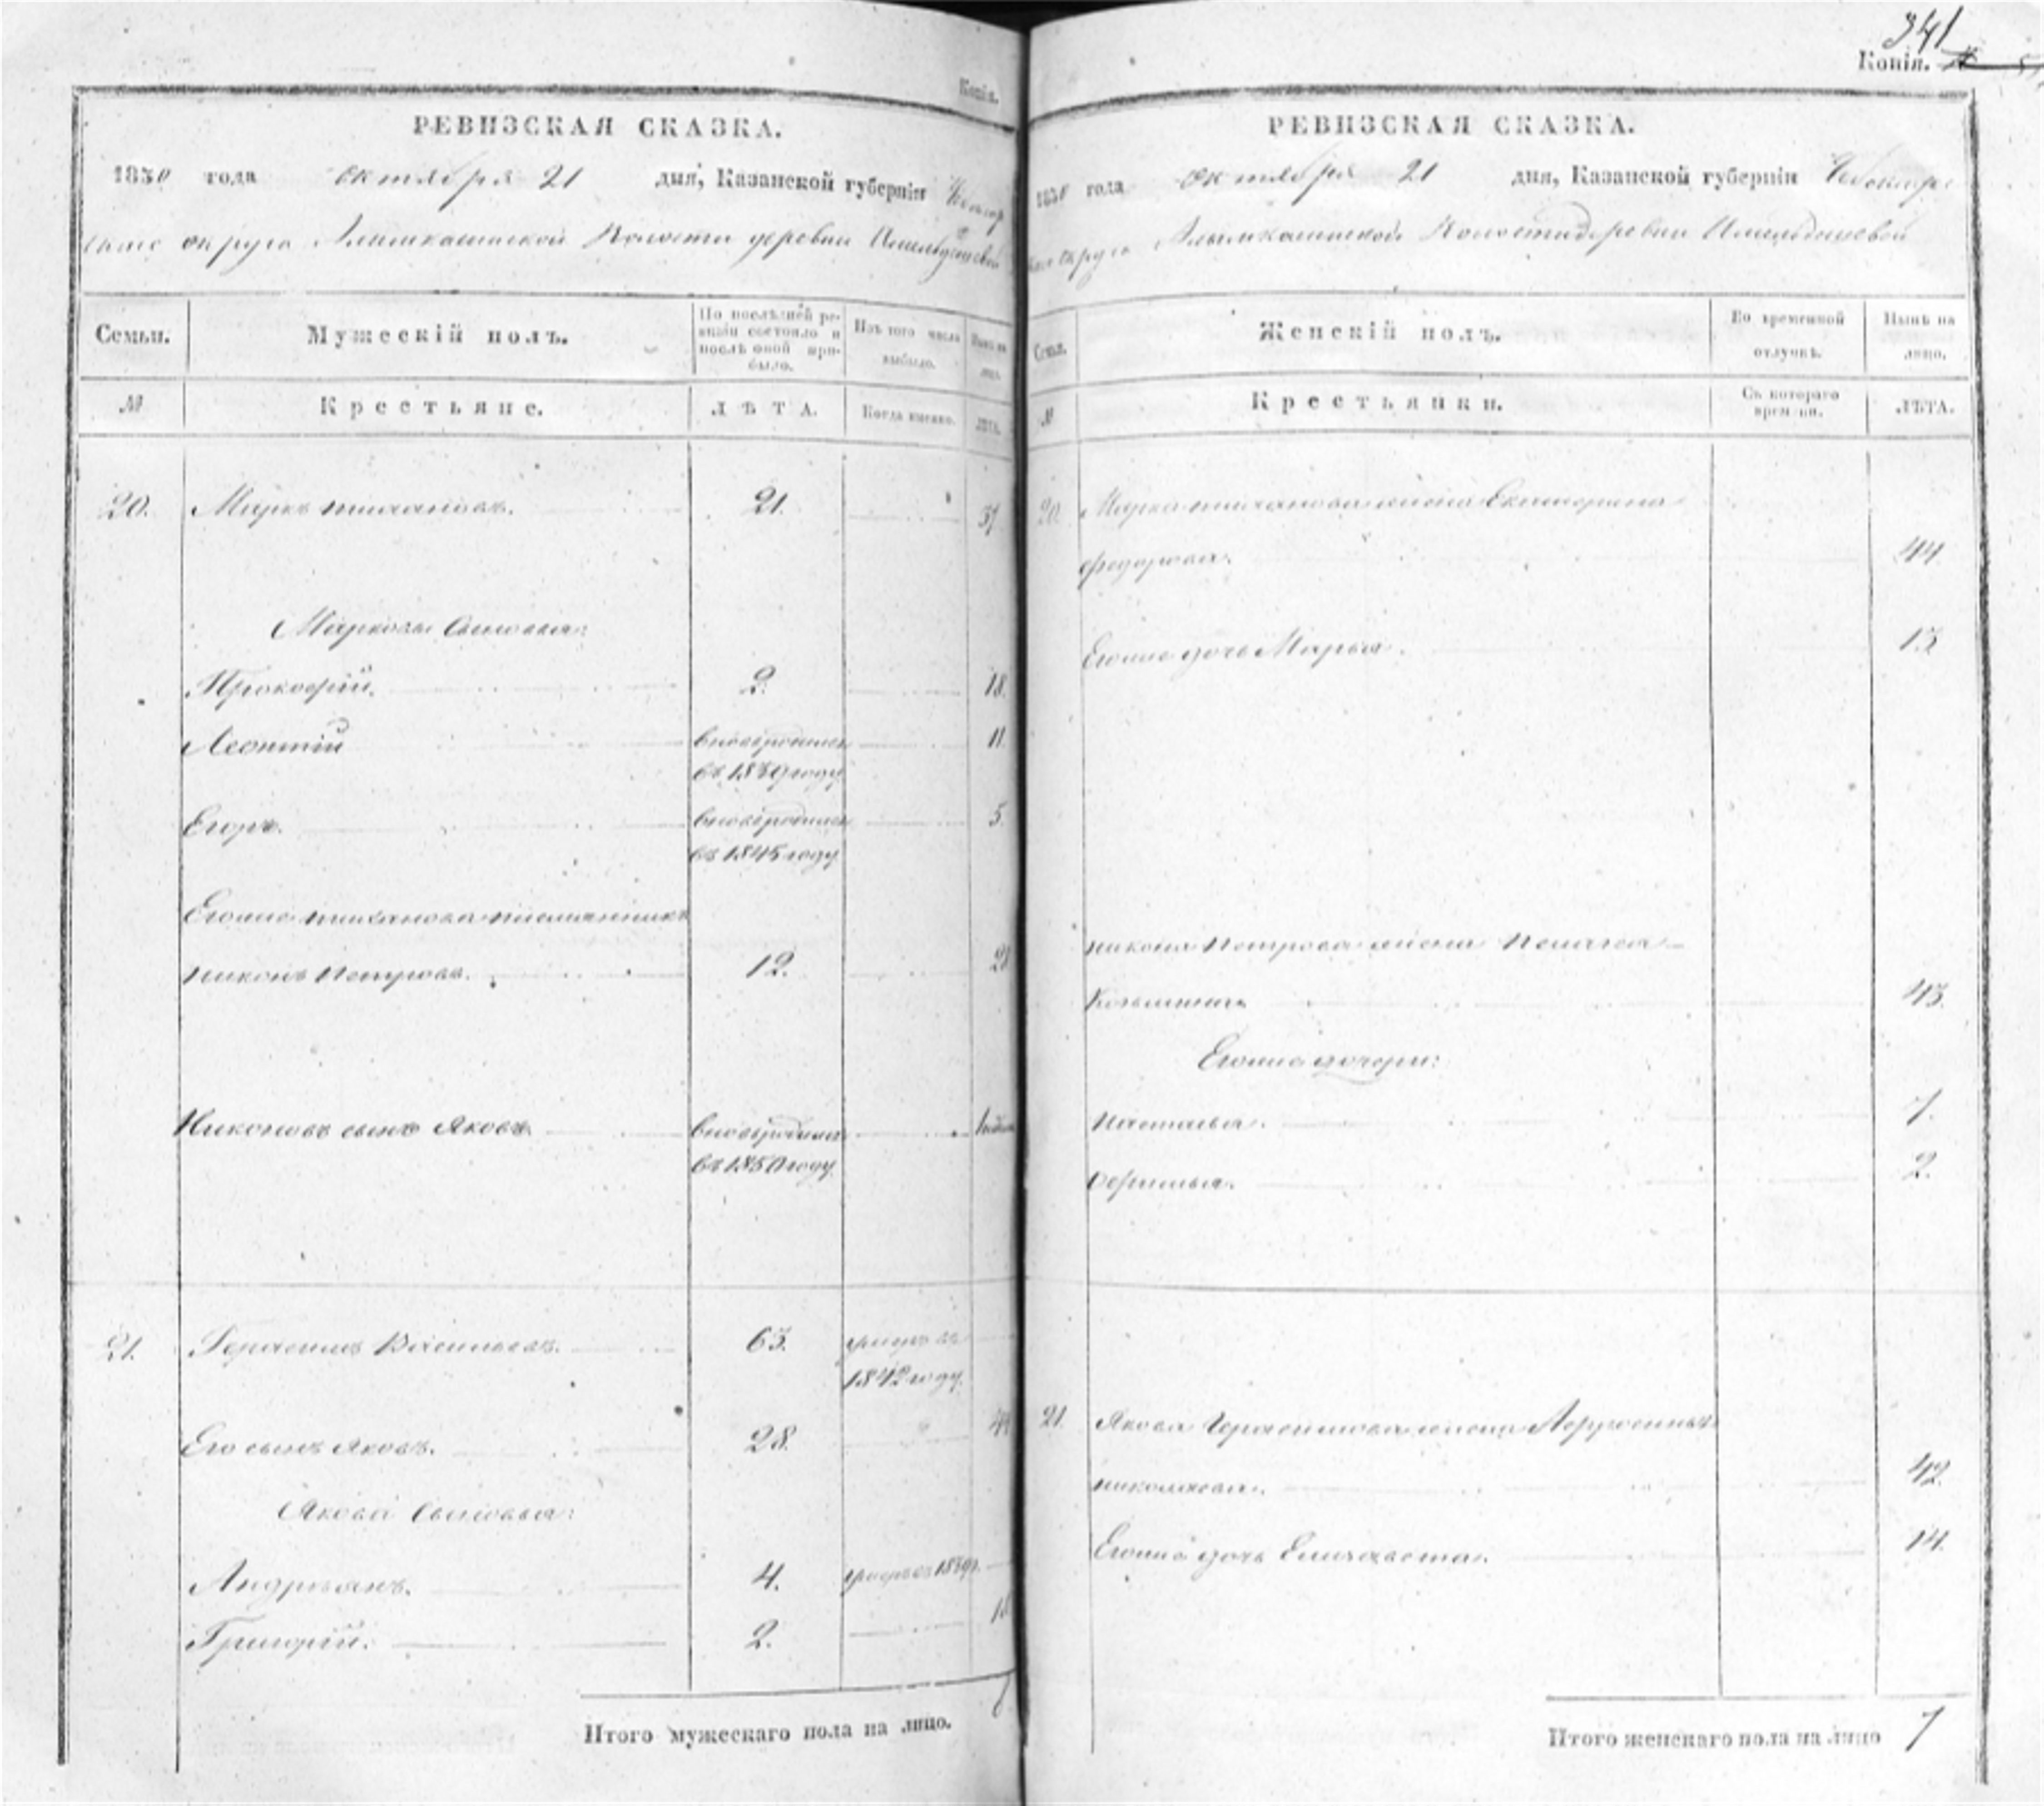 341
Копія.
РЕВИЗСКАЯ СКАЗКА.
1850 года октября 21 дня, Казанской губерніи
округа Волости деревни
Семьи. Мужескій полъ. По послѣдней ревизіи состояло и послѣ оной прибыло. Изъ того числа выбыло. Нынѣ на лицо.
№ Крестьяне. ЛѢТА. Когда именно. ЛѢТА.
20. Маркъ 21. 37
Марковы сыновья:
Прокофій. 2. 18.
Леонтій вновь родился 11.
въ 1839 году
Егоръ. вновь родился 5.
въ 1845 году
Егоже племянникъ
Никонъ Петровъ. 12. 28
Никоновъ сынъ Яковъ вновь родился
въ 1850 году
21. Герасимъ Васильевъ. 63. умеръ въ
1842 году
Его сынъ Яковъ. 28. 44
Якова сыновья:
Андреянъ. 4. умеръ въ 1839
Григорій. 2. 18
Итого мужескаго пола на лицо.
Копія.
РЕВИЗСКАЯ СКАЗКА.
1850 года октября 21 дня, Казанской губерніи
округа Волости деревни
Семьи. Женскій полъ. Во временной отлучкѣ. Нынѣ на лицо.
№ Крестьянки. Съ котораго времени. ЛѢТА.
20. Марка жена Екатерина
Федорова. 44.
Егоже дочь Марья. 13.
Никона Петрова жена Пелагея
Козьмина 43.
Егоже дочери:
Наталья. 7.
2.
21. Якова Герасимова жена
Николаева. 42.
Егоже дочь Елизавета. 14.
Итого женскаго пола на лицо 7